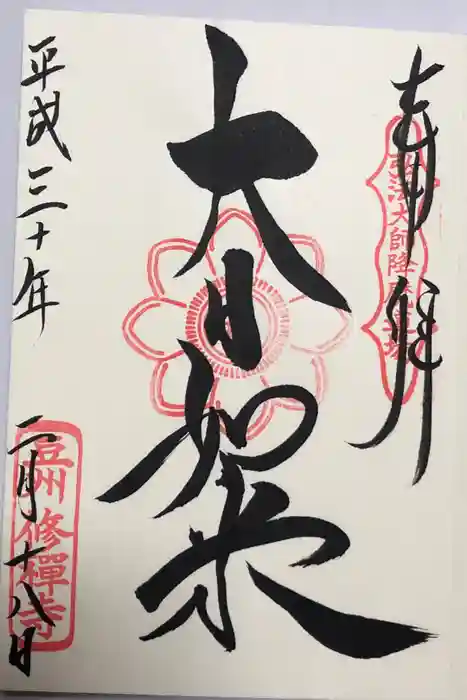 奉拝
弘法大師降魔道場
大日如来
平成三十年
二月十八日
豆州修禅寺